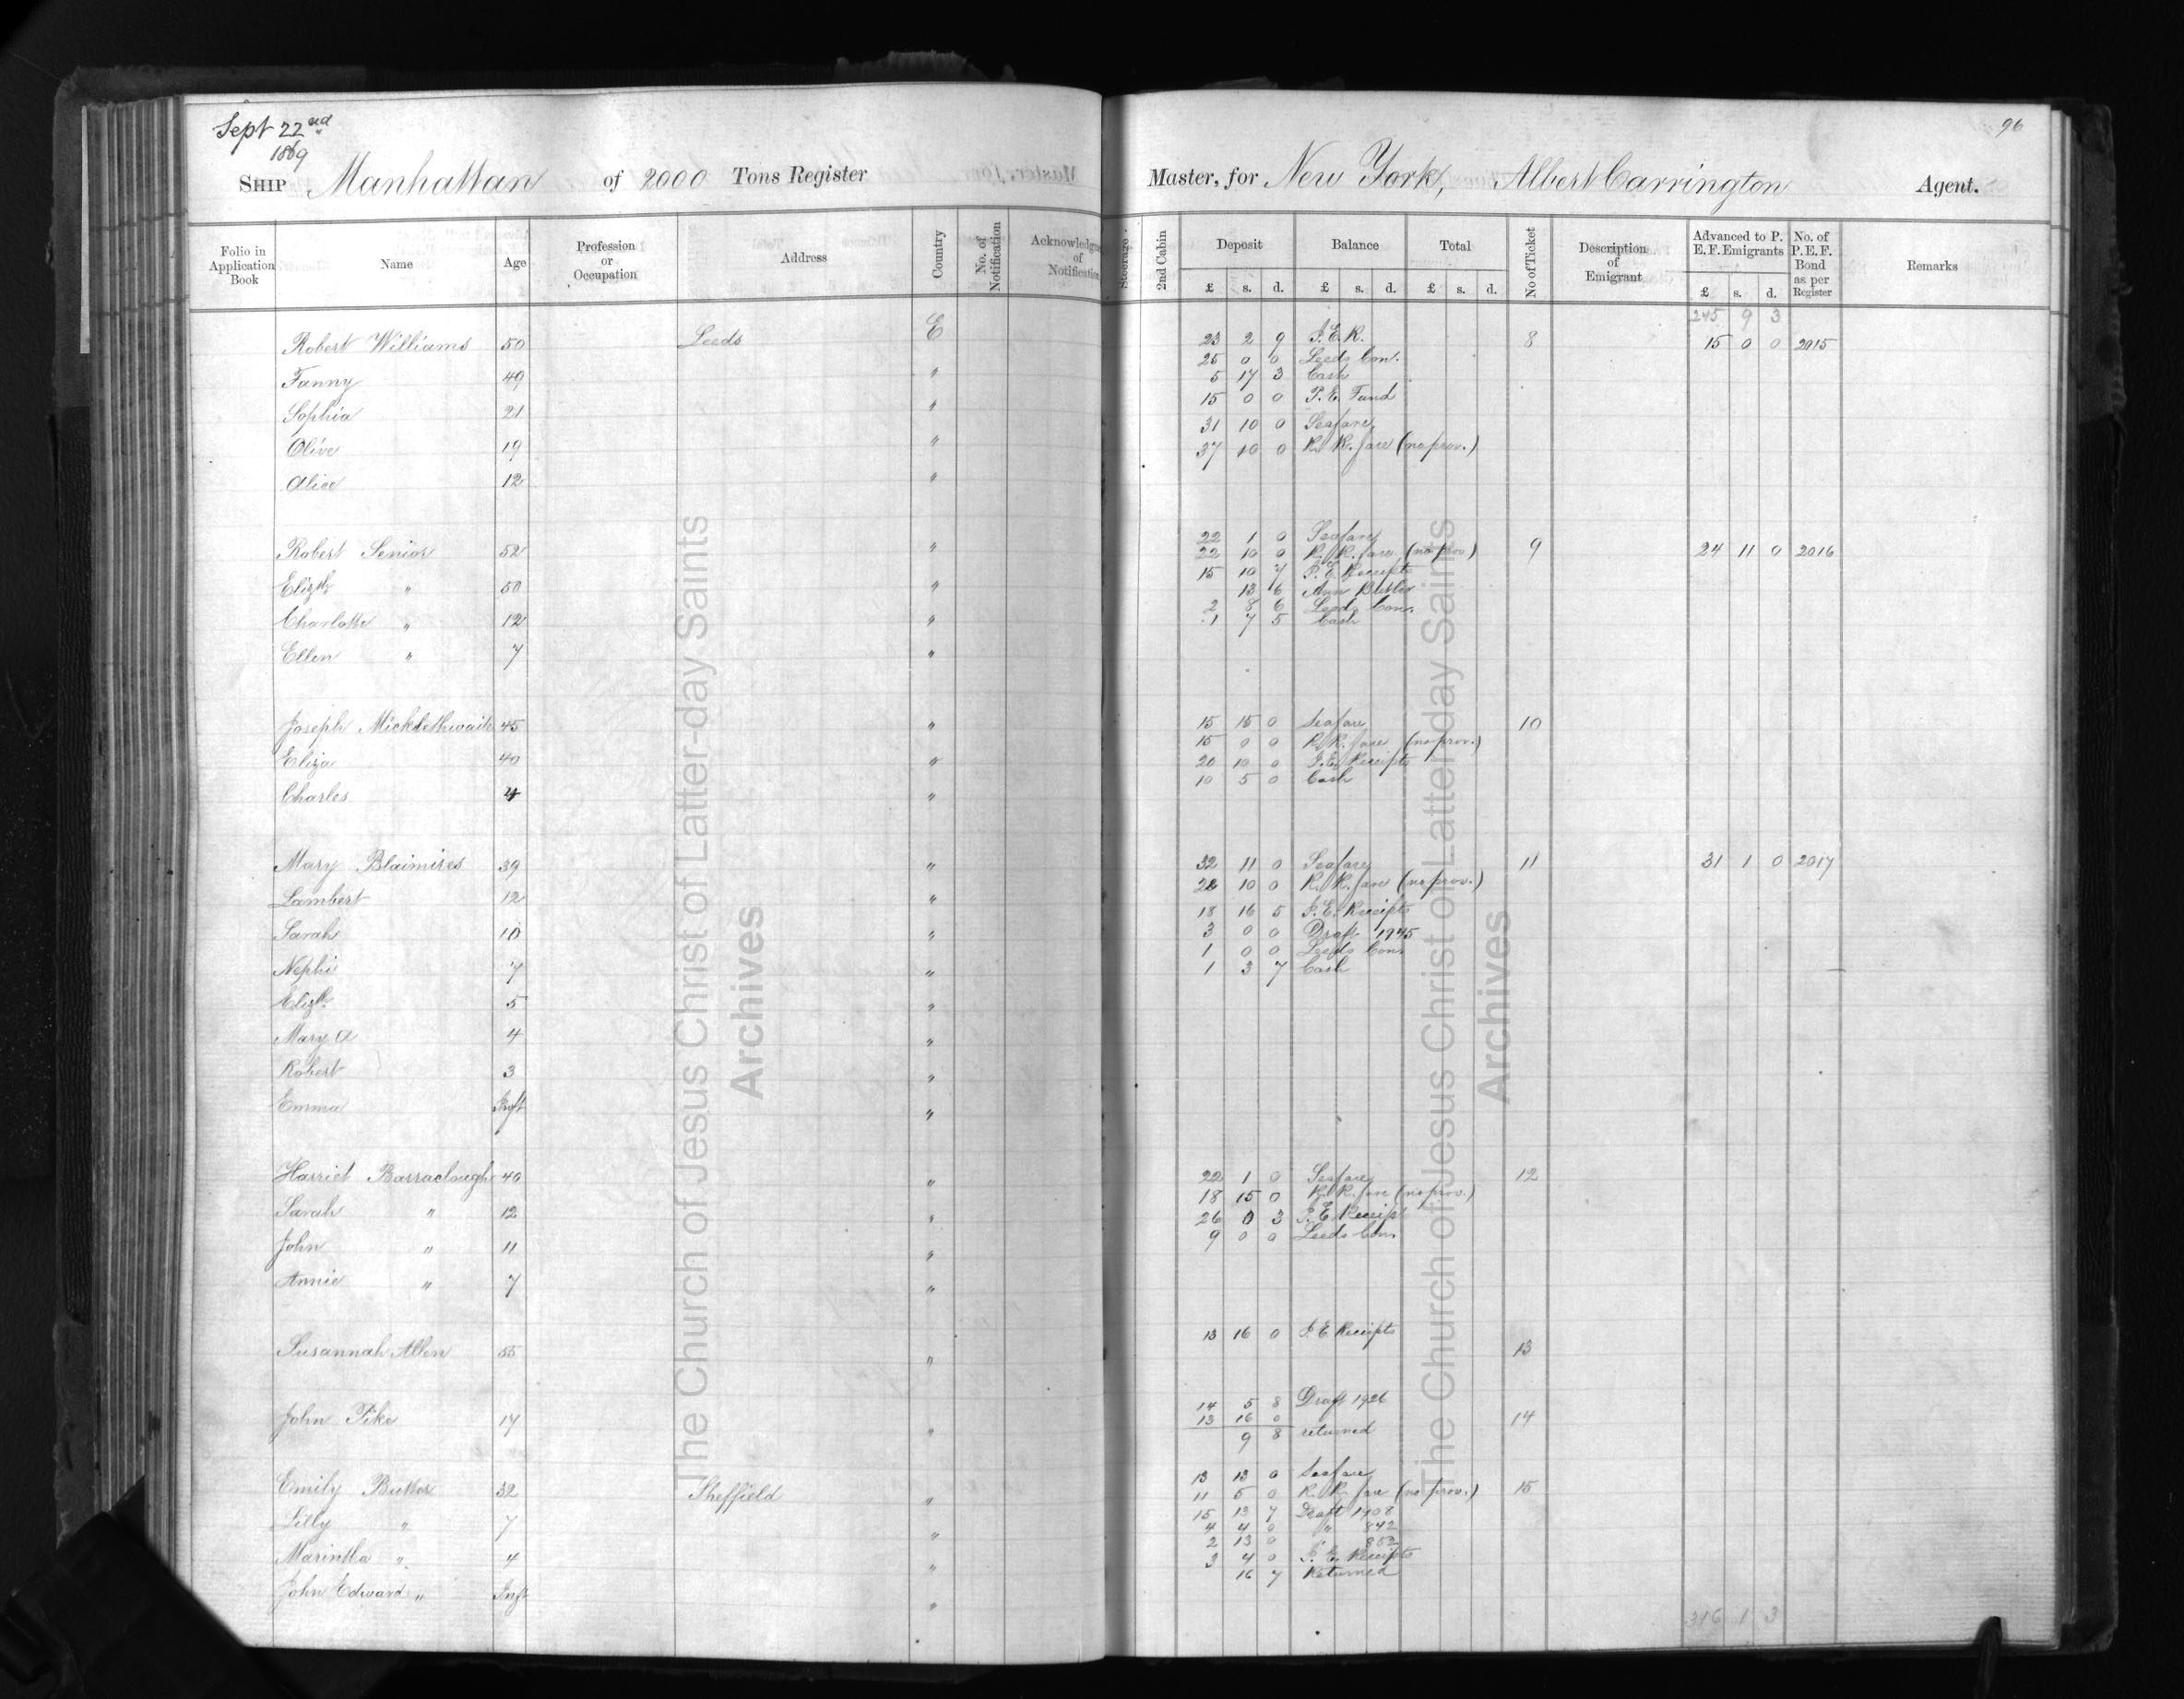 Sept 22nd
1869
96
SHIP Manhattan of 2000 Tons Register Master, for New York, Albert Carrington Agent.
Folio in Application Book Name Age Profession or Occupation Address Country No. of Notification Acknowledgm of Notification Steerage 2nd Cabin Deposit Balance Total No of Ticket Description of Emigrant Advanced to P. E. F. Emigrants No. of P.E.F. Bond as per Register Remarks
£ s. d. £ s. d. £ s. d. £ s. d.
245 9 3
Robert Williams 50 Leeds E 23 2 9 P.E.R. 8 15 0 0 2015
25 0 0 Leeds Con.
Fanny 49 " 5 17 3 Cash
15 0 0 P.E. Fund
Sophia 21 " 31 10 0 Seafare
Olive 19 " 37 10 0 R.R. fare (no prov.)
Alice 12 "
22 1 0 Seafare
Robert Senior 52 " 22 10 0 R.R. fare (no prov.) 9 24 11 0 2016
15 10 7 P.E. Receipts
Elizth " 50 " 13 6 Ann Butler
2 8 6 Leeds Con.
Charlotte " 12 " 1 7 5 Cash
Ellen " 7 "
Joseph Micklethwaite 45 " 15 15 0 Seafare 10
15 0 0 R.R. fare (no prov.)
Eliza 40 " 20 10 0 P.E. Receipts
10 5 0 Cash
Charles 4 "
Mary Blaimires 39 " 32 11 0 Seafare 11 31 1 0 2017
22 10 0 R.R. fare (no prov.)
Lambert 12 " 18 16 5 P.E. Receipts
Sarah 10 " 3 0 0 Draft 1945
1 0 0 Leeds Con.
Nephi 7 " 1 3 7 Cash
Elizth 5 "
Mary A 4 "
Robert 3 "
Emma Inft "
Harriet Barraclough 40 " 22 1 0 Seafare 12
18 15 0 R.R. fare (no prov.)
Sarah " 12 " 26 0 3 P.E. Receipt
9 0 0 Leeds Con.
John " 11 "
Annie " 7 "
13 16 0 P.E Receipts
Susannah Allen 55 " 13
14 5 8 Draft 1926
John Pike 17 " 13 16 0 14
9 8 returned
13 13 0 Seafare
Emily Butler 32 Sheffield " 11 5 0 R.R. fare (no prov.) 15
15 13 7 Draft 1908
Lilly " 7 " 4 4 0 " 842
2 13 0 " 852
Marintha " 4 " 3 4 0 P.E. Receipts
16 7 Returned
John Edward " Inft "
316 1 3
The Church of Jesus Christ of Latter-day Saints
Archives
The Church of Jesus Christ of Latter-day Saints
Archives